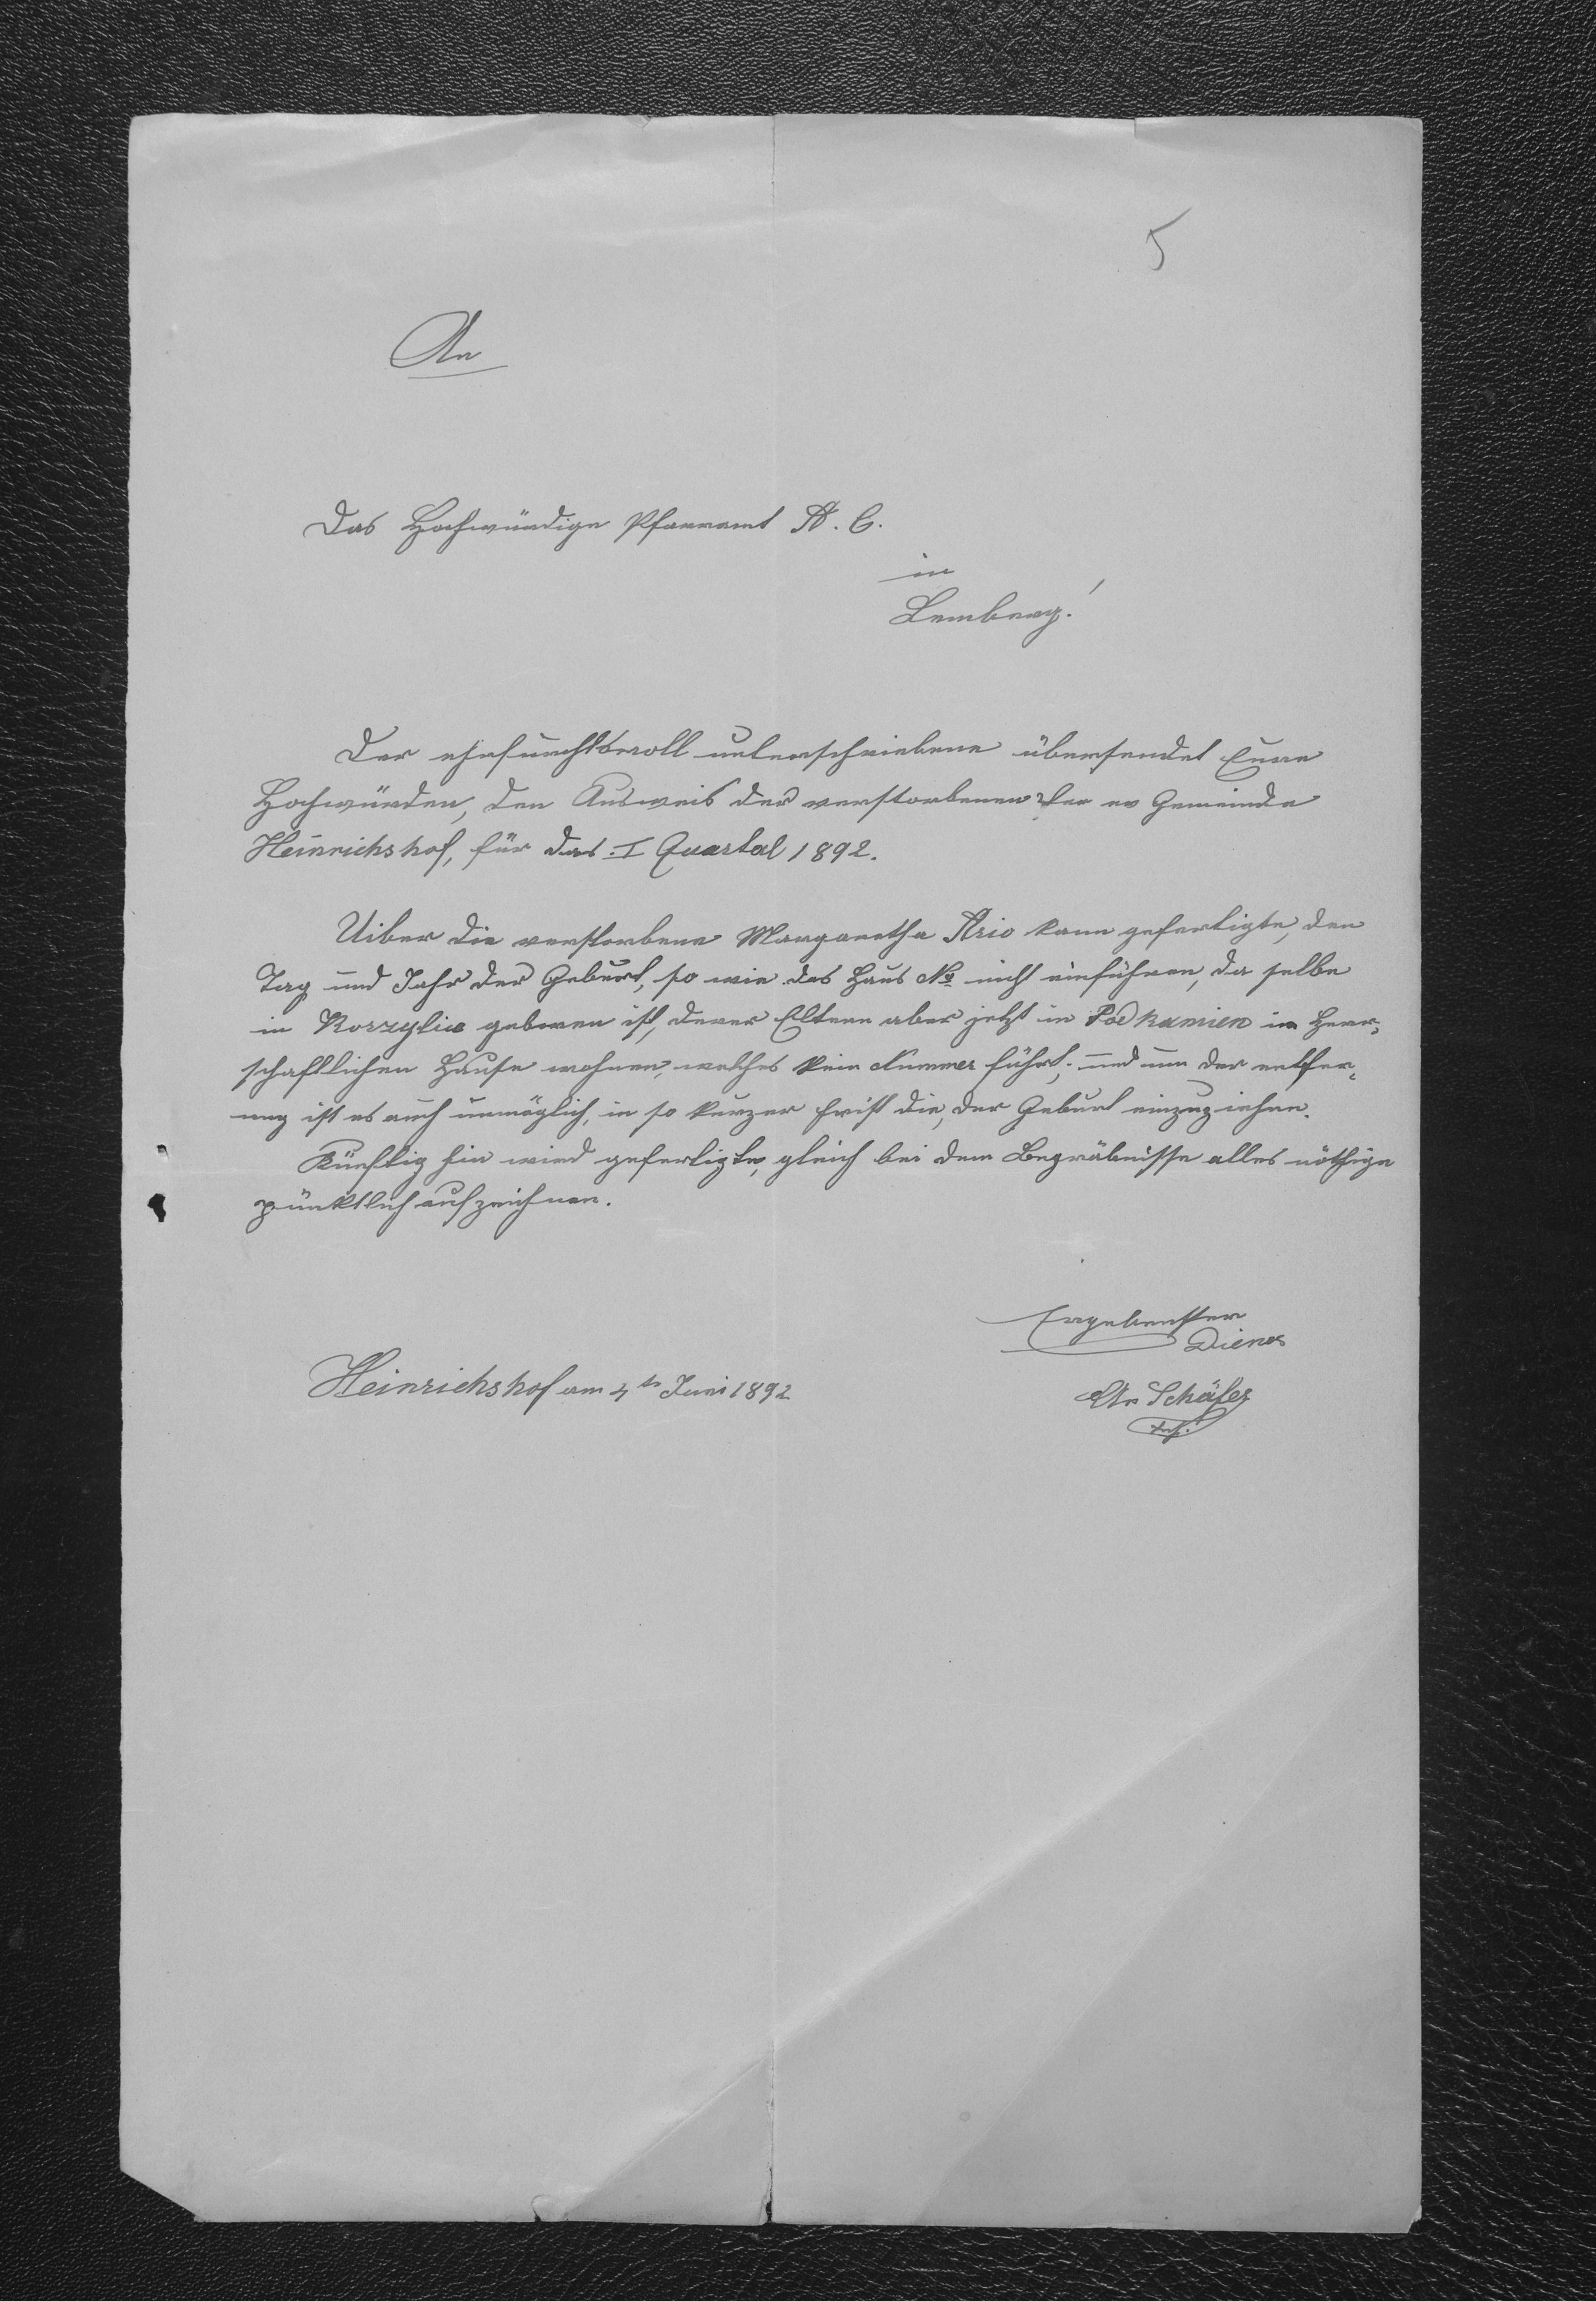 5
An
Das Hochwürdige Pfarramt A. C.
in
Lemberg!
Der ehrfurchtsvoll unterschriebene übersendet Eure
Hochwürden, den Ausweis der verstorbenen der ev Gemeinde
Heinrichshof, für das I Quartal 1892.
Uiber die verstorbene Margaretha Ario kann gefertigte, den
Tag und Jahr der Geburt, so wie das Haus No nicht einführen, da selbe
in Korzylie geboren ist, derer Eltern aber jetzt in Podkamien im Herr-
schaftlichen Hause wohnen, welches kein Nummer führt; und der entfer-
nung ist es auch unmöglich, in so kurzer Frist die, der Geburt einzuziehen.
Künftig hin wird gefertigte, gleich bei dem Begräbnisse alles nöthige
pünktlich aufzeichnen.
Ergebenster
Diener
Heinrichshof am 4ten Juni 1892
Schäfer